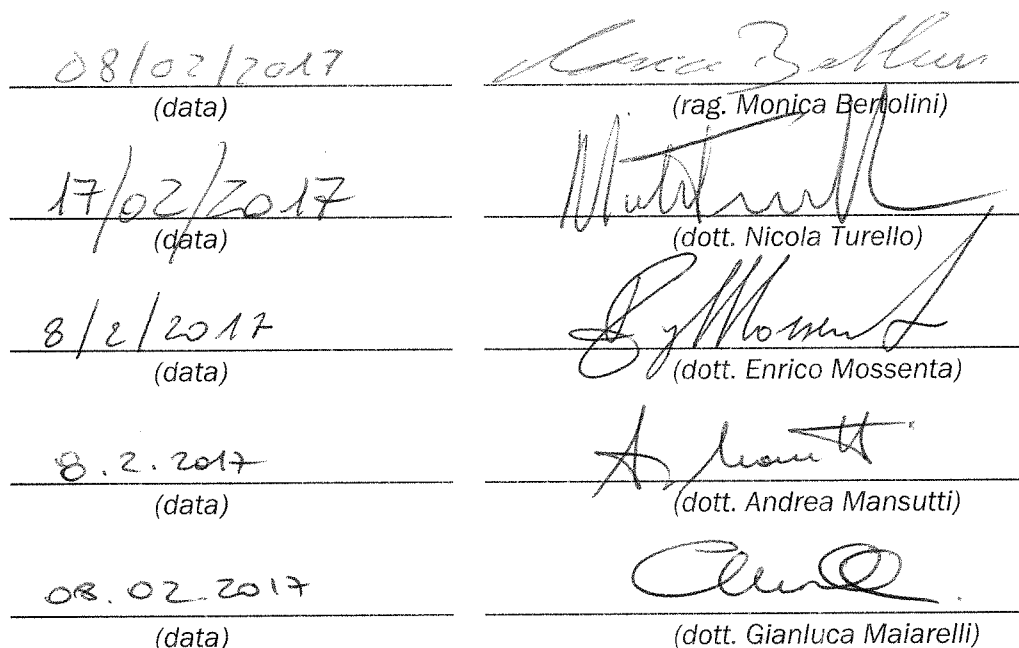 08/02/2017
(data) (rag. Monica Bertolini)
17/02/2017
(data) (dott. Nicola Turello)
8/2/2017
(data) (dott. Enrico Mossenta)
8.2.2017
(data) (dott. Andrea Mansutti)
08.02.2017
(data) (dott. Gianluca Maiarelli)